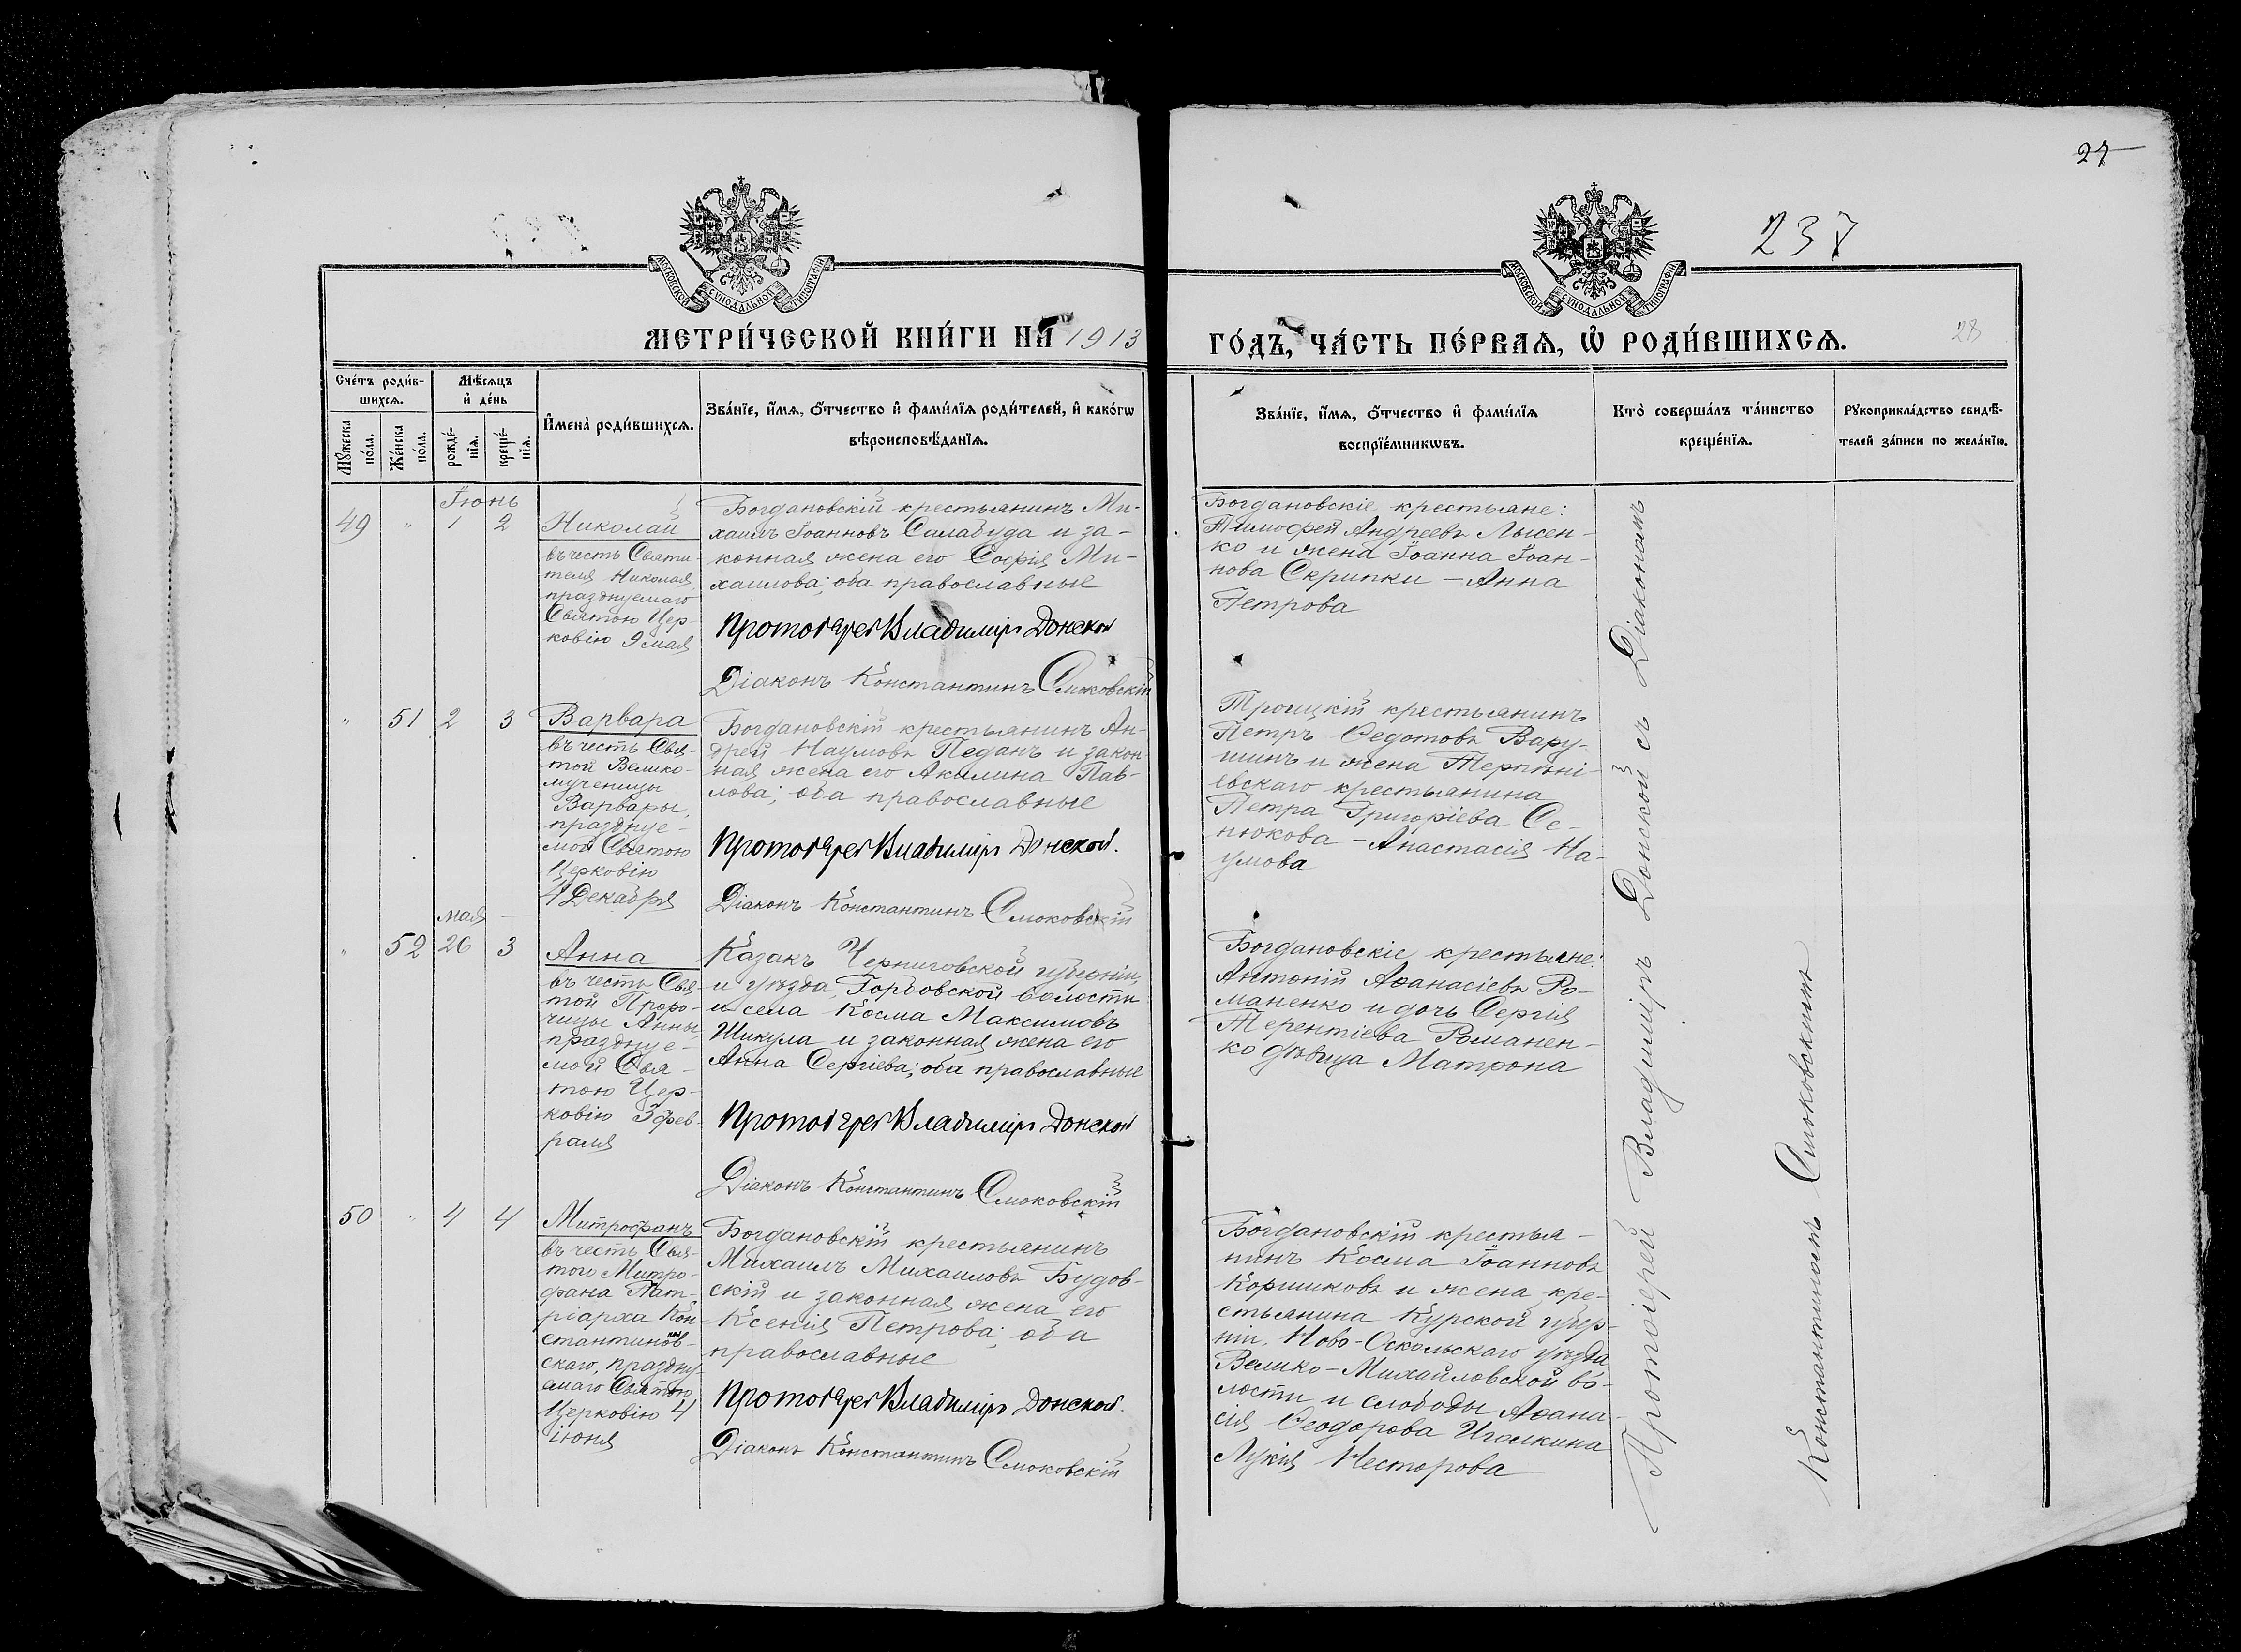 27
237
МОСКОВСКОЙ СѴНОДАЛЬНОЙ ТИПОГРАФІИ
МОСКОВСКОЙ СѴНОДАЛЬНОЙ ТИПОГРАФІИ
МЕТРИ́ЧЕСКОЙ КНИ́ГИ НА 1913
ГО́ДЪ, ЧА́СТЬ ПЕ́РВАѦ, Ѡ҆ РОДИ́ВШИХСѦ.
28
Сче́тъ роди́в-
шихсѧ.
Мѣ́сѧцъ
и҆ де́нь
Мꙋ́жеска
по́ла.
Же́нска
по́ла.
рожде́-
нїѧ.
креще́-
нїѧ.
И҆мена̀ роди́вшихсѧ.
Зва́нїе, и҆́мѧ, ѻ҆́тчество и҆ фами́лїѧ роди́телей, и҆ како́гѡ
вѣроисповѣ́данїѧ.
Зва́нїе, и҆́мѧ, ѻ҆́тчество и҆ фами́лїѧ
воспрїе́мникѡвъ.
Кто̀ соверша́лъ та́инство
креще́нїѧ.
Рꙋкоприкла́дство свидѣ́-
телей за́писи по жела́нїю.
Іюнь
49 " 1 2
Николай
въ честь Святи-
теля Николая
празднуемаго
Святою Цер-
ковію 9 мая
Богдановскій крестьянинъ Ми-
хаилъ Іоанновъ Салабуда и за-
конная жена его Софія Ми-
хаилова; оба православные
Протоіерей Владиміръ Донской
Діаконъ Константинъ Смоковскій
Богдановскіе крестьяне:
Тимофей Андреевъ Лысен-
ко и жена Іоанна Іоан-
нова Скрипки – Анна
Петрова
" 51 2 3
Варвара
въ честь Свя-
той Велико-
мученицы
Варвары,
праздnуе-
мой Святою
Церковію
4 Декабря
Богдановскій крестьянинъ Ан-
дрей Наумовъ Педанъ и закон
ная жена его Акилина Пав-
лова; оба православные
Протоіерей Владиміръ Донской.
Діаконъ Константинъ Смоковскій
Троицкій крестьянинъ
Петръ Ѳедотовъ Вару-
шинъ и жена Терпѣні-
евскаго крестьянина
Петра Григоріева Се-
нюкова – Анастасія На-
умова
мая –
" 52 26 3
Анна
въ честь Свя-
той Проро-
чицы Анны,
праздnуе-
мой Свя-
тою Цер-
ковію 3 фев-
раля
Казакъ Черниговской губерніи,
и уѣзда, Горбовской волости
и села Косма Максимовъ
Шикула и законная жена его
Анна Сергіева; оба православные
Протоіерей Владиміръ Донской
Діаконъ Константинъ Смоковскій
Богдановскіе крестьяне:
Антоній Аѳанасіевъ Ро-
маненко и дочь Сергія
Терентіева Романен-
ко дѣвица Матрона
50 " 4 4
Митрофанъ
въ честь Свя-
того Митро-
фана Пат-
ріарха Кон
стантинополь-
скаго, праздну-
емаго Святою
Церковію 4
іюня
Богдановскій крестьянинъ
Михаилъ Михаиловъ Будов-
скій и законная жена его
Ксенія Петрова; оба
православные
Протоіерей Владиміръ Донской.
Діаконъ Константинъ Смоковскій
Богдановскій крестья-
нинъ Косма Іоанновъ
Коршиковъ и жена кре-
стьянина Курской губер-
ніи, Ново-Оскольскаго уѣзда
Велико-Михайловской во-
лости и слободы Аѳана-
сія Ѳеодорова Иголкина
Лукія Несторова
Протоіерей Владиміръ Донской съ Діакономъ
Константиномъ Смоковскимъ